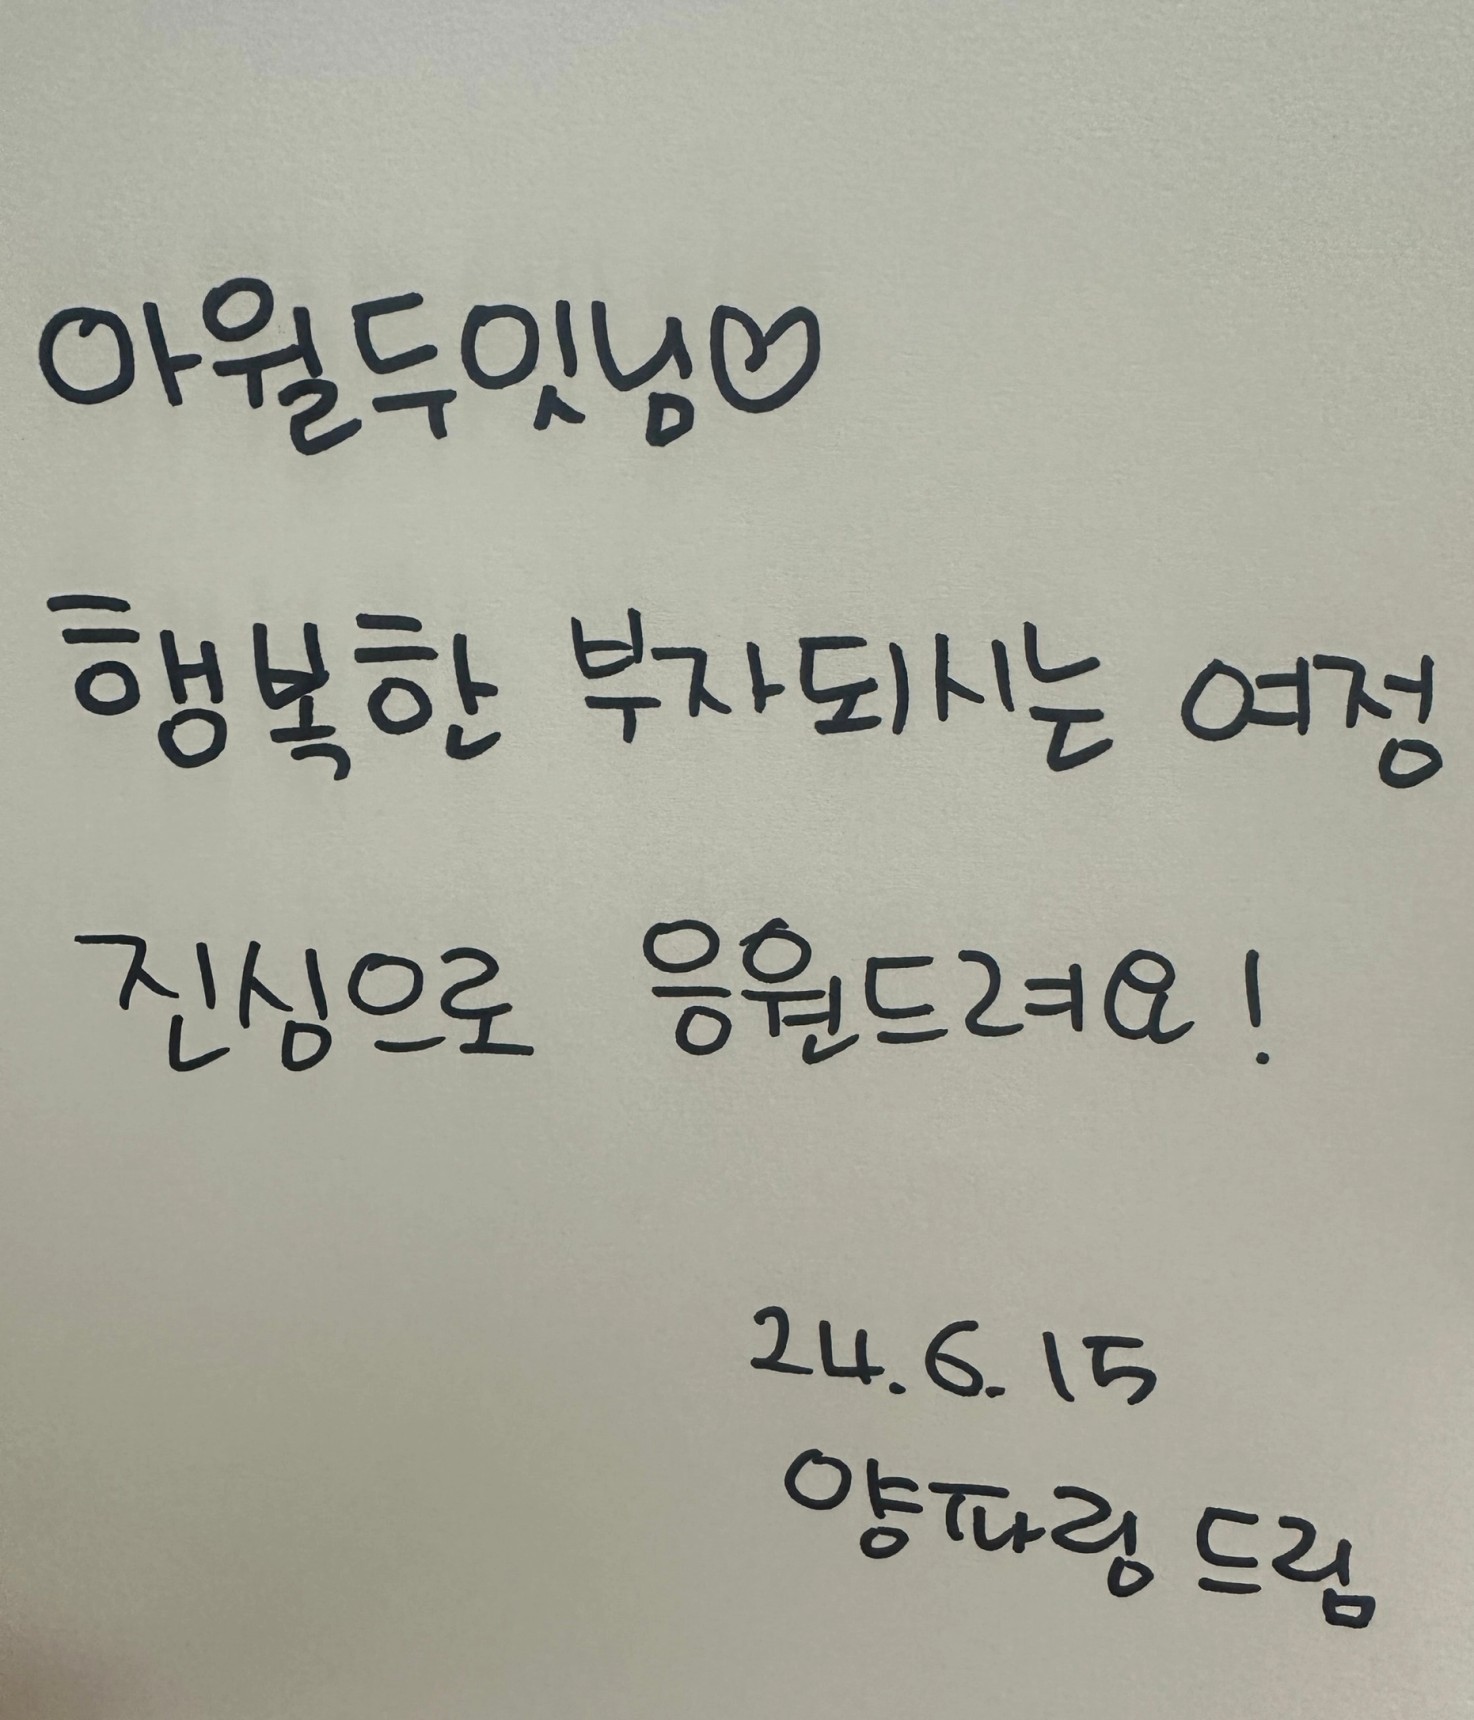 아윌두잇님♡
행복한 부자되시는 여정
진심으로 응원드려요!
24.6.15
양파링 드림